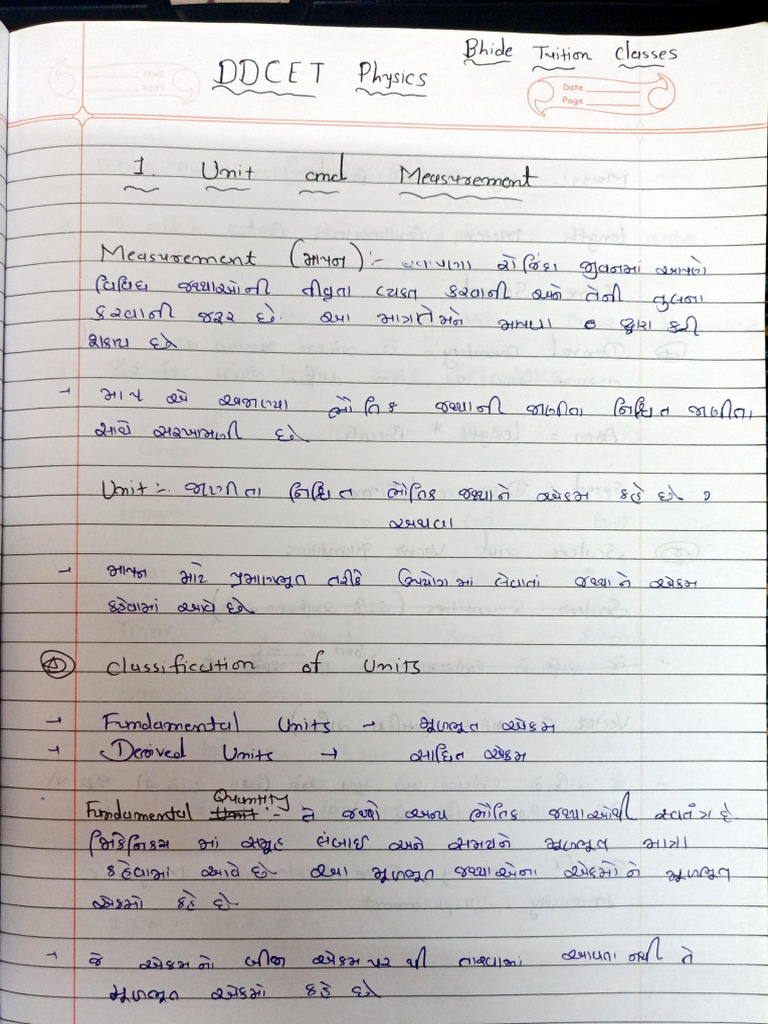 Bhide Tuition Classes
DDCET Physics
Date
Page
1. Unit and Measurement
Measurement (માપન) :- રોજિંદા જીવનમાં આપણે
વિવિધ જથ્થાઓની તીવ્રતા વ્યક્ત કરવાની અને તેની તુલના
કરવાની જરૂર છે. આ માત્ર તેમને માપવા દ્વારા કરી
શકાય છે
→ માપ એ અજાણ્યા ભૌતિક જથ્થાની જાણીતા નિશ્ચિત જાણીતા
સાથે સરખામણી છે.
Unit :- જાણીતા નિશ્ચિત ભૌતિક જથ્થાને એકમ કહે છે.
અથવા
→ માપન માટે પ્રમાણભૂત તરીકે ઉપયોગમાં લેવાતાં જથ્થાને એકમ
કહેવામાં આવે છે
Classification of Units
→ Fundamental Units → મૂળભૂત એકમ
→ Derived Units → સાધિત એકમ
Fundamental Quantity :- તે જથ્થો અન્ય ભૌતિક જથ્થાઓથી સ્વતંત્ર છે
મિકેનિક્સ માં સમૂહ લંબાઈ અને સમયને મૂળભૂત માત્રા
કહેવામાં આવે છે આ મૂળભૂત જથ્થાઓના એકમોને મૂળભૂત
એકમો કહે છે.
→ જે એકમનો બીજા એકમ પર થી તારવામાં આવતા નથી તે
મૂળભૂત એકમો કહે છે